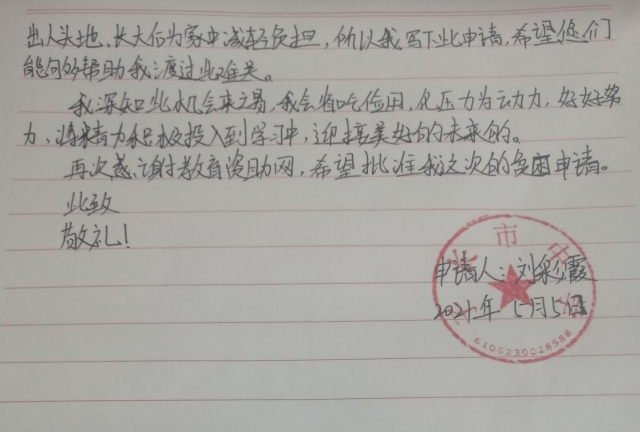 出人头地，长大后为家中减轻负担，所以我写下此申请，希望您们
能够帮助我渡过此难关。
我深知此机会来之易，我会省吃俭用，化压力为动力，好好努
力，将精力积极投入到学习中，迎接美好的未来的。
再次感谢教育资助网，希望批准我这次的贫困申请。
此致
敬礼！
市中
申请人：刘彩霞
2021年5月5日
6100230028586